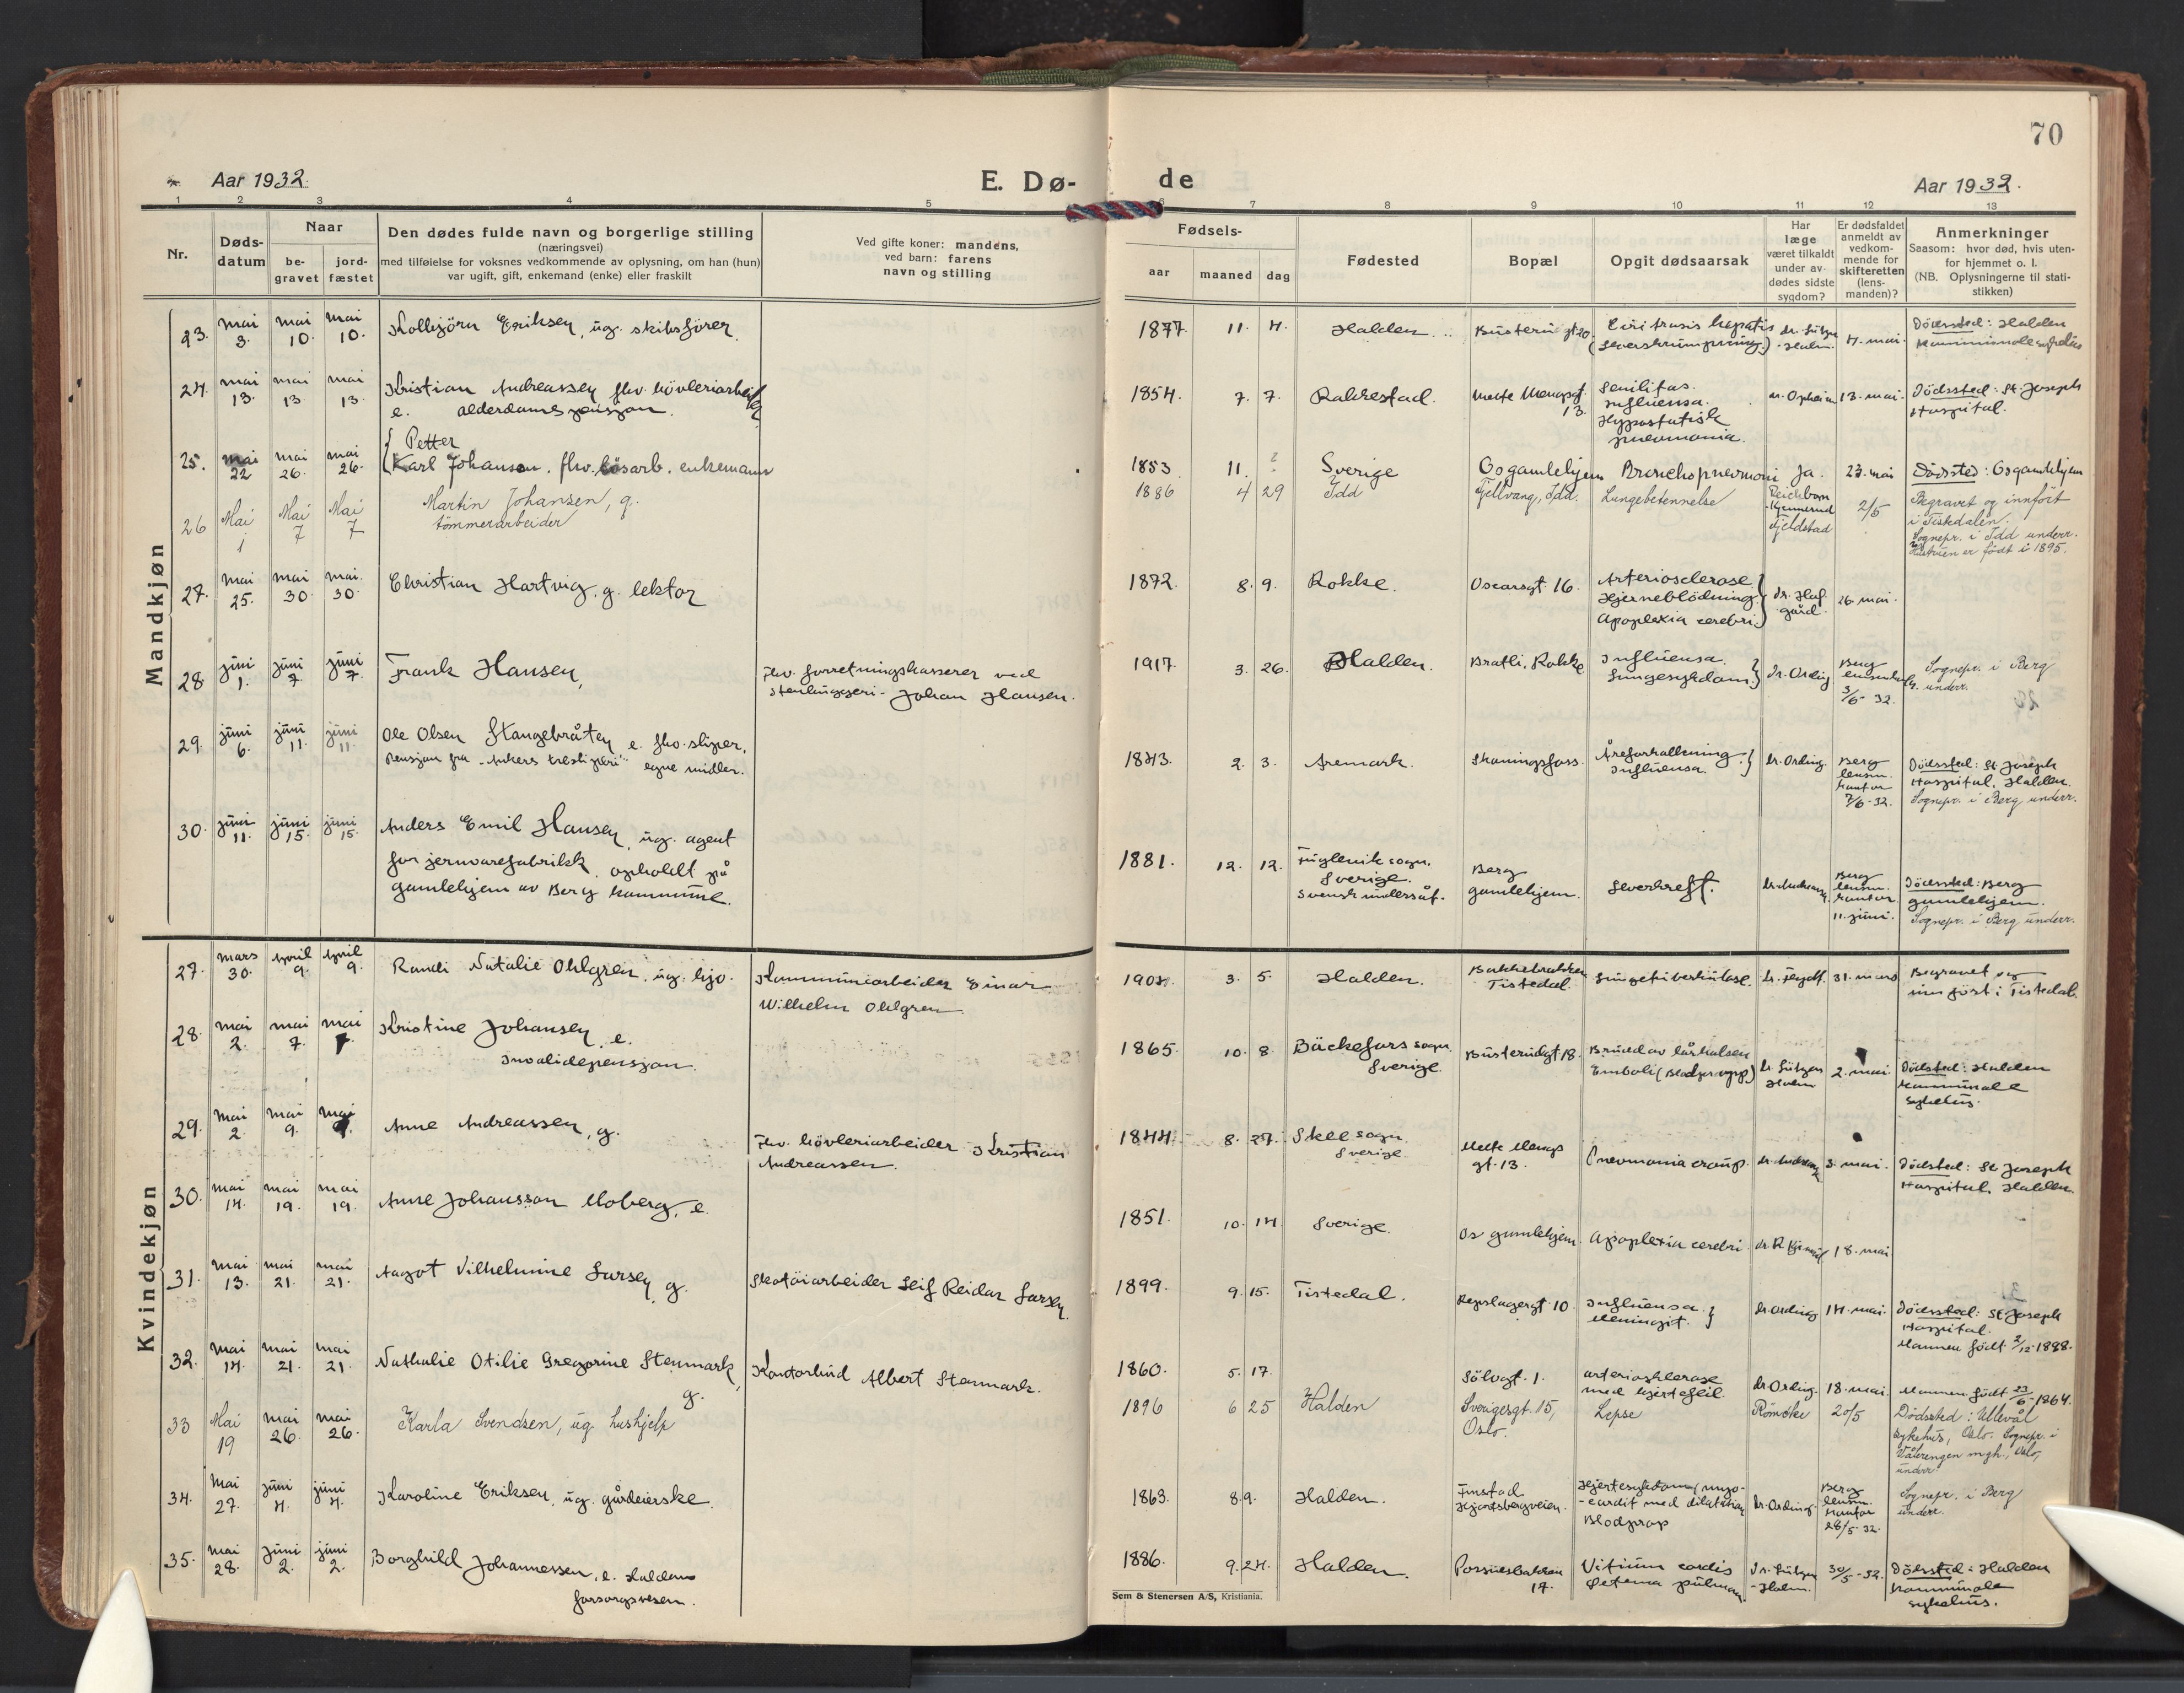 70
Aar 1932.
E. Dø-
de
Aar 1932.
1 2 3 4 5 6 7 8 9 10 11 12 13
Nr.
Døds-
datum
Naar
be-
gravet
jord-
fæstet
Den dødes fulde navn og borgerlige stilling
(næringsvei)
med tilføielse for voksnes vedkommende av oplysning, om han (hun)
var ugift, gift, enkemand (enke) eller fraskilt
Ved gifte koner: mandens,
ved barn: farens
navn og stilling
Fødsels-
aar
maaned
dag
Fødested
Bopæl
Opgit dødsaarsak
Har
læge
været tilkaldt
under av-
dødes sidste
sygdom?
Er dødsfaldet
anmeldt av
vedkom-
mende for
skifteretten
(lens-
manden)?
Anmerkninger
Saasom: hvor død, hvis uten-
for hjemmet o. l.
(NB. Oplysningerne til stati-
stikken)
Mandkjøn
23. mai 3. mai 10. mai 10. Kolbjörn Eriksen, ug. skibsförer.
1877. 11. 4. Halden. Busterudgt 20. Cirrhosis hepatis
(Leverskrumpning.) dr. Lützow
-Holm. 4. mai. Dödssted: Halden
kommunale sykehus
24. mai 13. mai 13. mai 13. Kristian Andreassen fhv. hövleriarbeider
e. alderdomspensjon.
1854. 7. 7. Rakkestad. Mette Mengsgt
13. Senilitas.
Influensa.
Hypostatisk
pneumonia. dr. Opheim 13. mai. Dödssted: St. Joseph
Hospital.
25. mai 22 mai 26. mai 26. Petter
Karl Johansen. fhv. lösarb. enkemann
1853. 11. ? Sverige Os gamlehjem Bronchopneumoni Ja. 23. mai Dödssted: Os gamlehjem
26 Mai 1 Mai 7 Mai 7 Martin Johansen, g.
tömmerarbeider
1886 4 29 Idd Fjellvang, Idd. Lungebetennelse Reichborn
-Kjennerud
Fjeldstad 2/5 Begravet og innfört
i Tistedalen.
Sognepr. i Idd underr.
Hustruen er födt i 1895.
27. mai 25. mai 30. mai. 30. Christian Hartvig. g. lektor
1872. 8. 9. Rokke. Oscarsgt 16. Arteriosclerose.
Hjerneblödning.
Apoplexia cerebri. dr. Haf-
gård. 26. mai.
28 juni 1. juni 7. juni 7. Frank Hansen, Fhv. forretningskasserer ved
stenhuggeri- Johan Hansen.
1917. 3. 26. Halden. Bratli. Rokke Influensa.
Lungesykdom. dr. Ording Berg
3/6-32. Sognepr. i Berg
underr.
29. juni 6. juni 11. juni 11. Ole Olsen Stangebråten e. fhv. sliper.
Pensjon fra "Ankers tresliperi" egne midler.
1843. 2. 3. Aremark. Skaningsfoss. Åreforkalkning.
Influensa. dr. Ording. Berg
lensm.
kontor
7/6-32. Dödssted: St. Joseph
Hospital, Halden.
Sognepr. i Berg underr.
30. juni 11. juni 15. juni 15. Anders Emil Hansen, ug. agent
for jernvarefabrikk. opholdt på
gamlehjem av Berg kommune.
1881. 12. 12. sogn.
Sverige.
Svensk undersåt. Berg
gamlehjem. Leverkreft. dr. Andreassen. Berg
lensm.
kontor
11. juni. Dödssted: Berg
gamlehjem.
Sognepr. i Berg underr.
Kvindekjøn
27. mars 30. April 9. April 9. Randi Natalie Ohlgren. ug. hjv. Kommunearbeider Einar
Wilhelm Ohlgren.
1904. 3. 5. Halden. Bakkebrakken
Tistedal. Lungetuberkulose. dr. 31. mars Begravet og
innfört i Tistedal.
28. mai 2. mai 7. mai 7. Kristine Johansen, e.
Invalidepensjon.
1865. 10. 8. Bäckefors sogn.
Sverige. Busterudgt 18. Brudd av lårhalsen
Emboli (Blodpropp) dr. Lützow
Holm 2. mai. Dödssted: Halden
kommunale
sykehus.
29. mai 2. mai 9. mai 9. Anne Andreassen, g. Fhv. hövleriarbeider Kristian
Andreassen.
1844. 8. 27. Skee sogn.
Sverige. Mette Mengs
gt. 13. Pneumonia croup. dr. Andreassen 3. mai. Dödssted: St Joseph
Hospital. Halden.
30. mai 14. mai 19. mai 19. Anne Johansson Moberg, e.
1851. 10. 14 Sverige. Os gamlehjem. Apoplexia cerebri. dr. R. Kjennerud 18. mai
31. mai 13. mai 21. mai 21. Aagot Vilhelmine Larsen, g. Skotöiarbeider Leif Reidar Larsen.
1899. 9. 15. Tistedal. Repslagergt 10. Influensa.
Meningit. dr. Ording 14. mai. Dödssted: St Joseph
Hospital.
Mannen födt 2/12-1898.
32. mai 14. mai 21. mai 21. Nathalie Otilie Gregorine Stenmark,
g. Kontorbud Albert Stenmark.
1860. 5. 17. Sölvgt. 1. arteriosklerose
med hjertefeil. dr. Ording. 18. mai. Mannen födt 23/6-1864.
33 Mai 19 mai 26. mai 26. Karla Svendsen, ug. hushjelp
1896 6 25 Halden Sverigesgt. 15,
Oslo. Lepse Römcke 20/5 Dödssted: Ullevål
sykehus, Oslo. Sognepr. i
Vålerengen mgh., Oslo,
underr.
34. Mai 27. juni 4. juni 4. Karoline Eriksen, ug. gårdeierske.
1863. 8. 9. Halden. Fredstad
Hjortsbergveien. Hjertesykdom (myo-
-cardit med dilatation
Blodprop dr. Ording. Berg
lensm.
kontor
28/5-32. Sognepr. i Berg
underr.
35. mai 28. juni 2. juni 2. Borghild Johannessen, e. Haldens
forsorgsvesen.
1886. 9. 24. Halden. Porsnesbakken
17. Vitium cordis
Oedema pulmon. dr. Lützow
-Holm. 30/5-32. Dödssted: Halden
kommunale
sykehus.
Sem & Stenersen A/S, Kristiania.